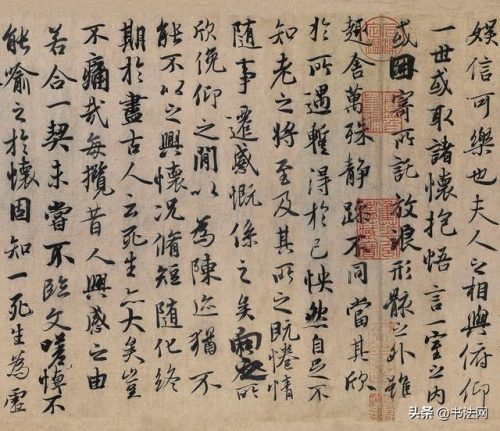 娛信可樂也夫人之相與俯仰
一世或取諸懷抱悟言一室之內
或因寄所託放浪形骸之外雖
趣舍萬殊靜躁不同當其欣
於所遇蹔得於己怏然自足不
知老之將至及其所之既惓情
隨事遷感慨係之矣向之所
欣俛仰之閒以為陳迹猶不
能不以之興懷況脩短隨化終
期於盡古人云死生亦大矣豈
不痛哉每攬昔人興感之由
若合一契未嘗不臨文嗟悼不
能喻之於懷固知一死生為虛
头条 @书法网